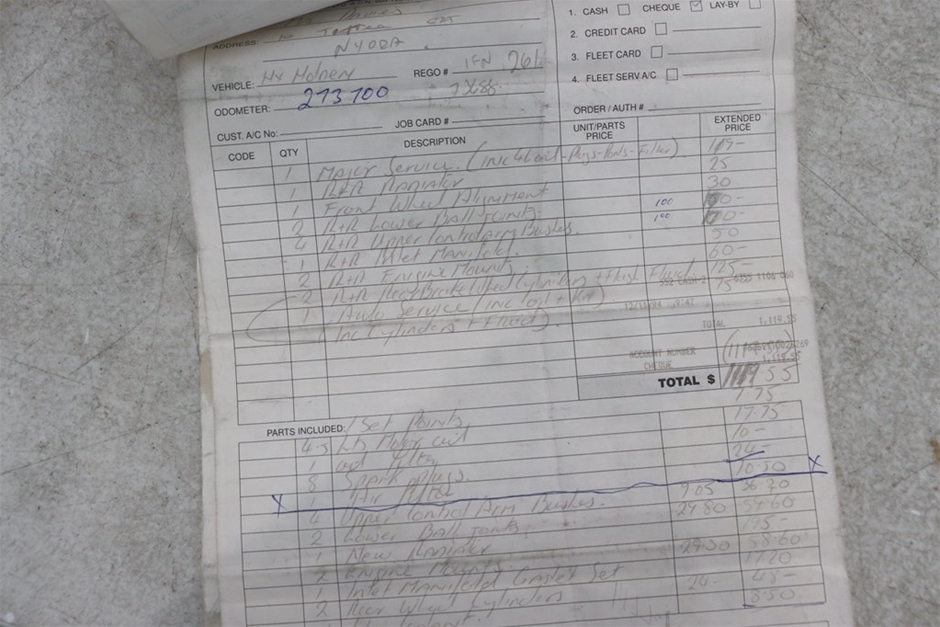 1. CASH CHEQUE LAY-BY
2. CREDIT CARD
3. FLEET CARD
4. FLEET SERV A/C
ADDRESS:
NYORA
VEHICLE: HX Holden REGO # IFN 261
ODOMETER: 273700
ORDER / AUTH #
CUST. A/C No: JOB CARD #
CODE QTY DESCRIPTION UNIT/PARTS PRICE EXTENDED PRICE
1 Major Service (inc - Plugs - Points - Filter)
1 R+R Radiator 25
1 Front Wheel Alignment 30
2 R+R Lower Ball Joints 100
4 R+R Upper Control Arm Bushes. 100
1 R+R Inlet Manifold. 50
2 R+R Engine Mounts 60-
2 R+R Rear Brake Wheel Cylinders + Flush Fluid 125-
1 Auto Service (inc oil + Kit) 75
(Inc Cylinders + Fluid).
TOTAL 1,119.55
ACCOUNT NUMBER
CHEQUE 1,119.55
TOTAL $ 1119.55
PARTS INCLUDED: 1 Set Points 7.75
4.5 Lts Motor oil 17.75
1 oil Filter 10-
8 Spark plugs. 24-
X 1 Air Filter 10.50 X
4 Upper Control Arm Bushes. 9.05 36.20
2 Lower Ball Joints. 29.80 59.60
1 New Radiator 195-
2 Engine Mounts 29.30 58.60
1 Inlet Manifold Gasket Set 17.20
2 Rear Wheel Cylinders 24- 48-
8.50